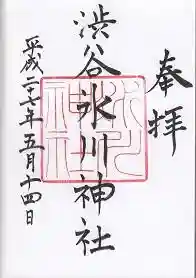 奉拝
渋谷氷川神社
平成二十七年五月十四日